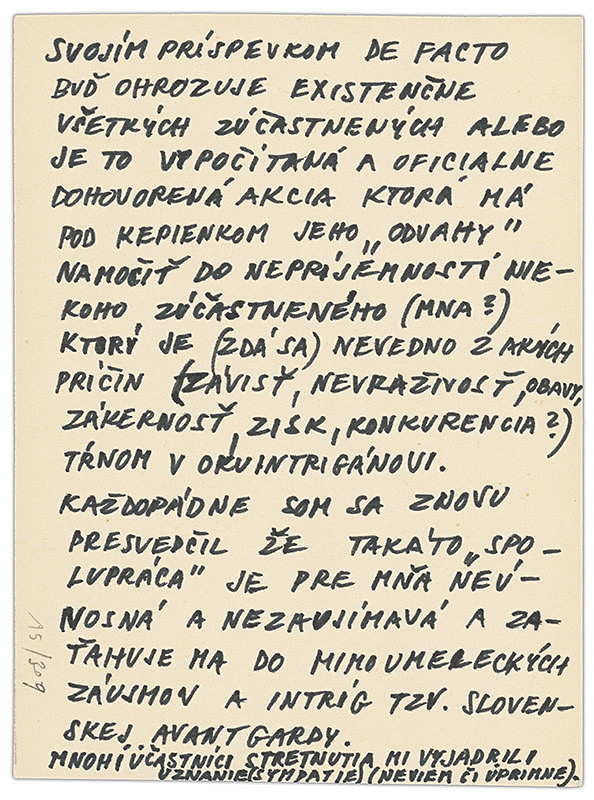 SVOJÍM PRÍSPEVKOM DE FACTO
BUĎ OHROZUJE EXISTENČNE
VŠETKÝCH ZÚČASTNENÝCH ALEBO
JE TO VYPOČÍTANÁ A OFICIALNE
DOHOVORENÁ AKCIA KTORÁ MÁ
POD KEPIENKOM JEHO „ODVAHY"
NAMOČIŤ DO NEPRÍJEMNOSTÍ NIE-
KOHO ZÚČASTNENÉHO (MNA?)
KTORÝ JE (ZDÁ SA) NEVEDNO Z AKÝCH
PRIČIN (ZÁVISŤ, NEVRAŽIVOSŤ, OBAVY,
ZÁKERNOSŤ, ZISK, KONKURENCIA?)
TŔNOM V OKU INTRIGÁNOVI.
KAŽDOPÁDNE SOM SA ZNOVU
PRESVEDČIL ŽE TAKÁTO „SPO-
LUPRÁCA" JE PRE MŇA NEÚ-
NOSNÁ A NEZAUJÍMAVÁ A ZA-
ŤAHUJE MA DO MIMOUMELECKÝCH
ZÁUJMOV A INTRÍG TZV. SLOVEN-
SKEJ AVANTGARDY.
MNOHÍ ÚČASTNÍCI STRETNUTIA MI VYJADRILI
UZNANIE (SYMPATIE) (NEVIEM ČI ÚPRIMNE).
15/309